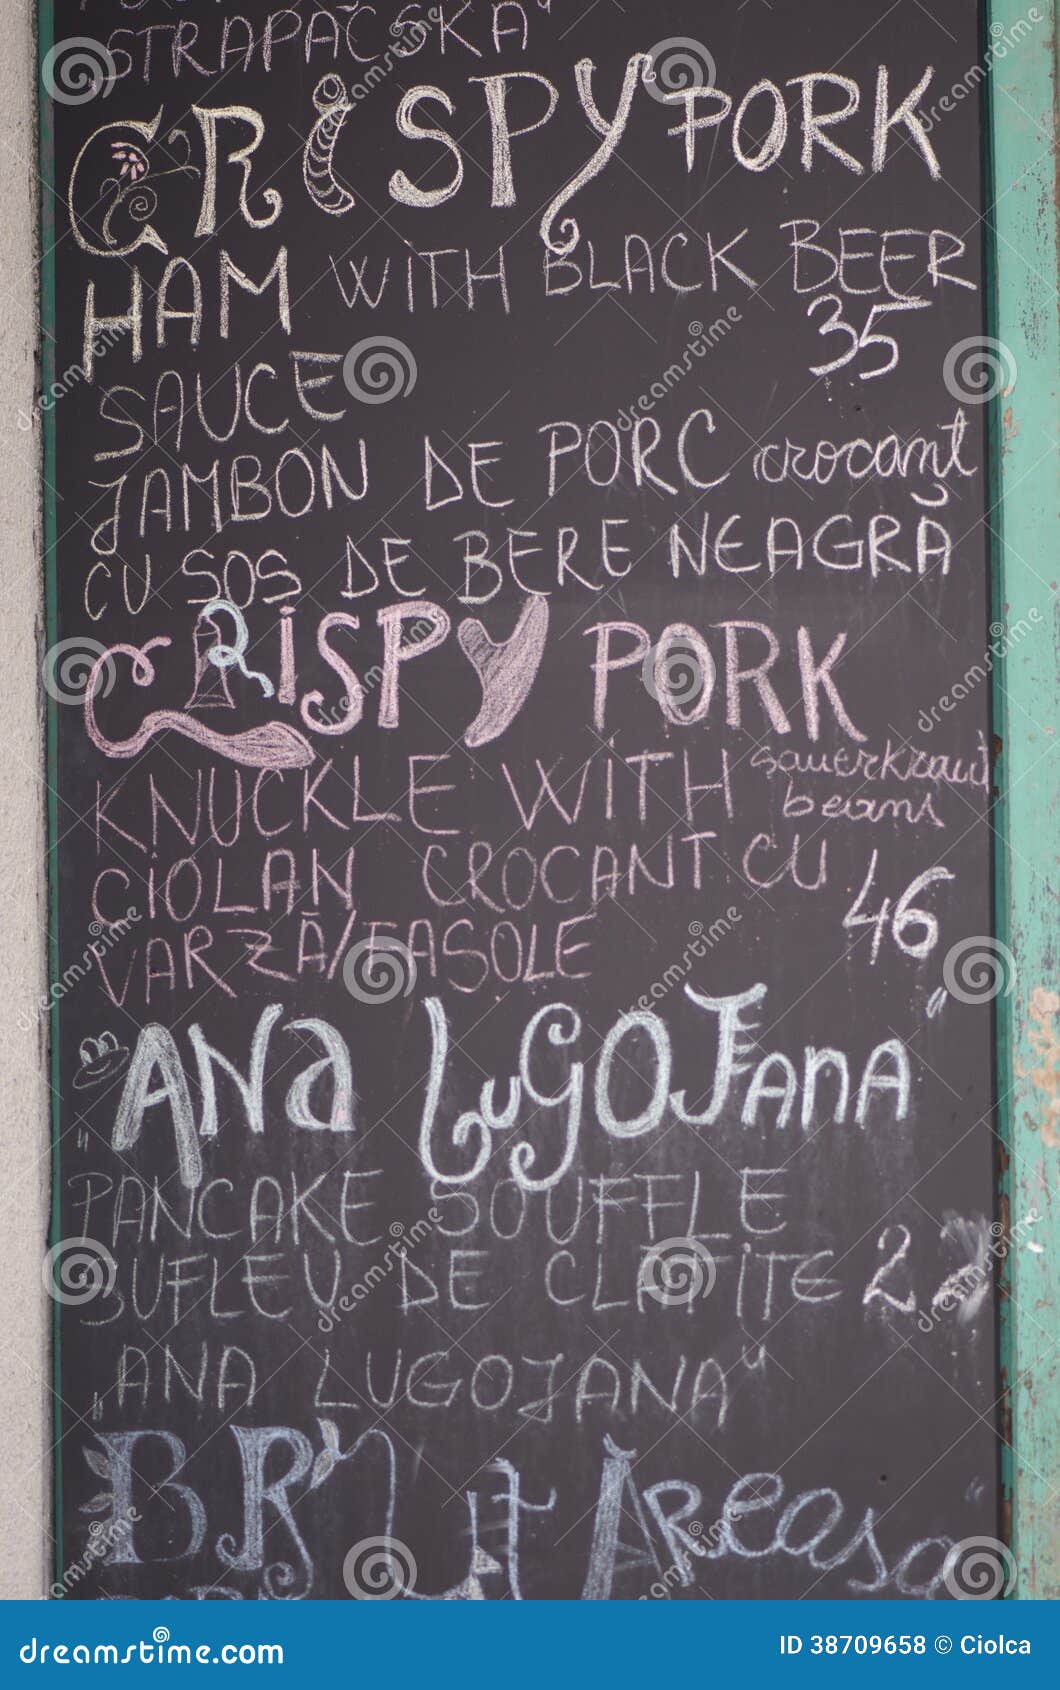 STRAPAČSKA"
CRISPY PORK
HAM WITH BLACK BEER
35
SAUCE
JAMBON DE PORC crocanț
CU SOS DE BERE NEAGRĂ
CRISPY PORK
KNUCKLE WITH sauerkraut
beans
CIOLAN CROCANT CU
46
VARZĂ/FASOLE
"ANA LUGOJANA"
PANCAKE SOUFFLE
SUFLEU DE CLATITE 22
"ANA LUGOJANA"
dreamstime.com
ID 38709658 © Ciolca